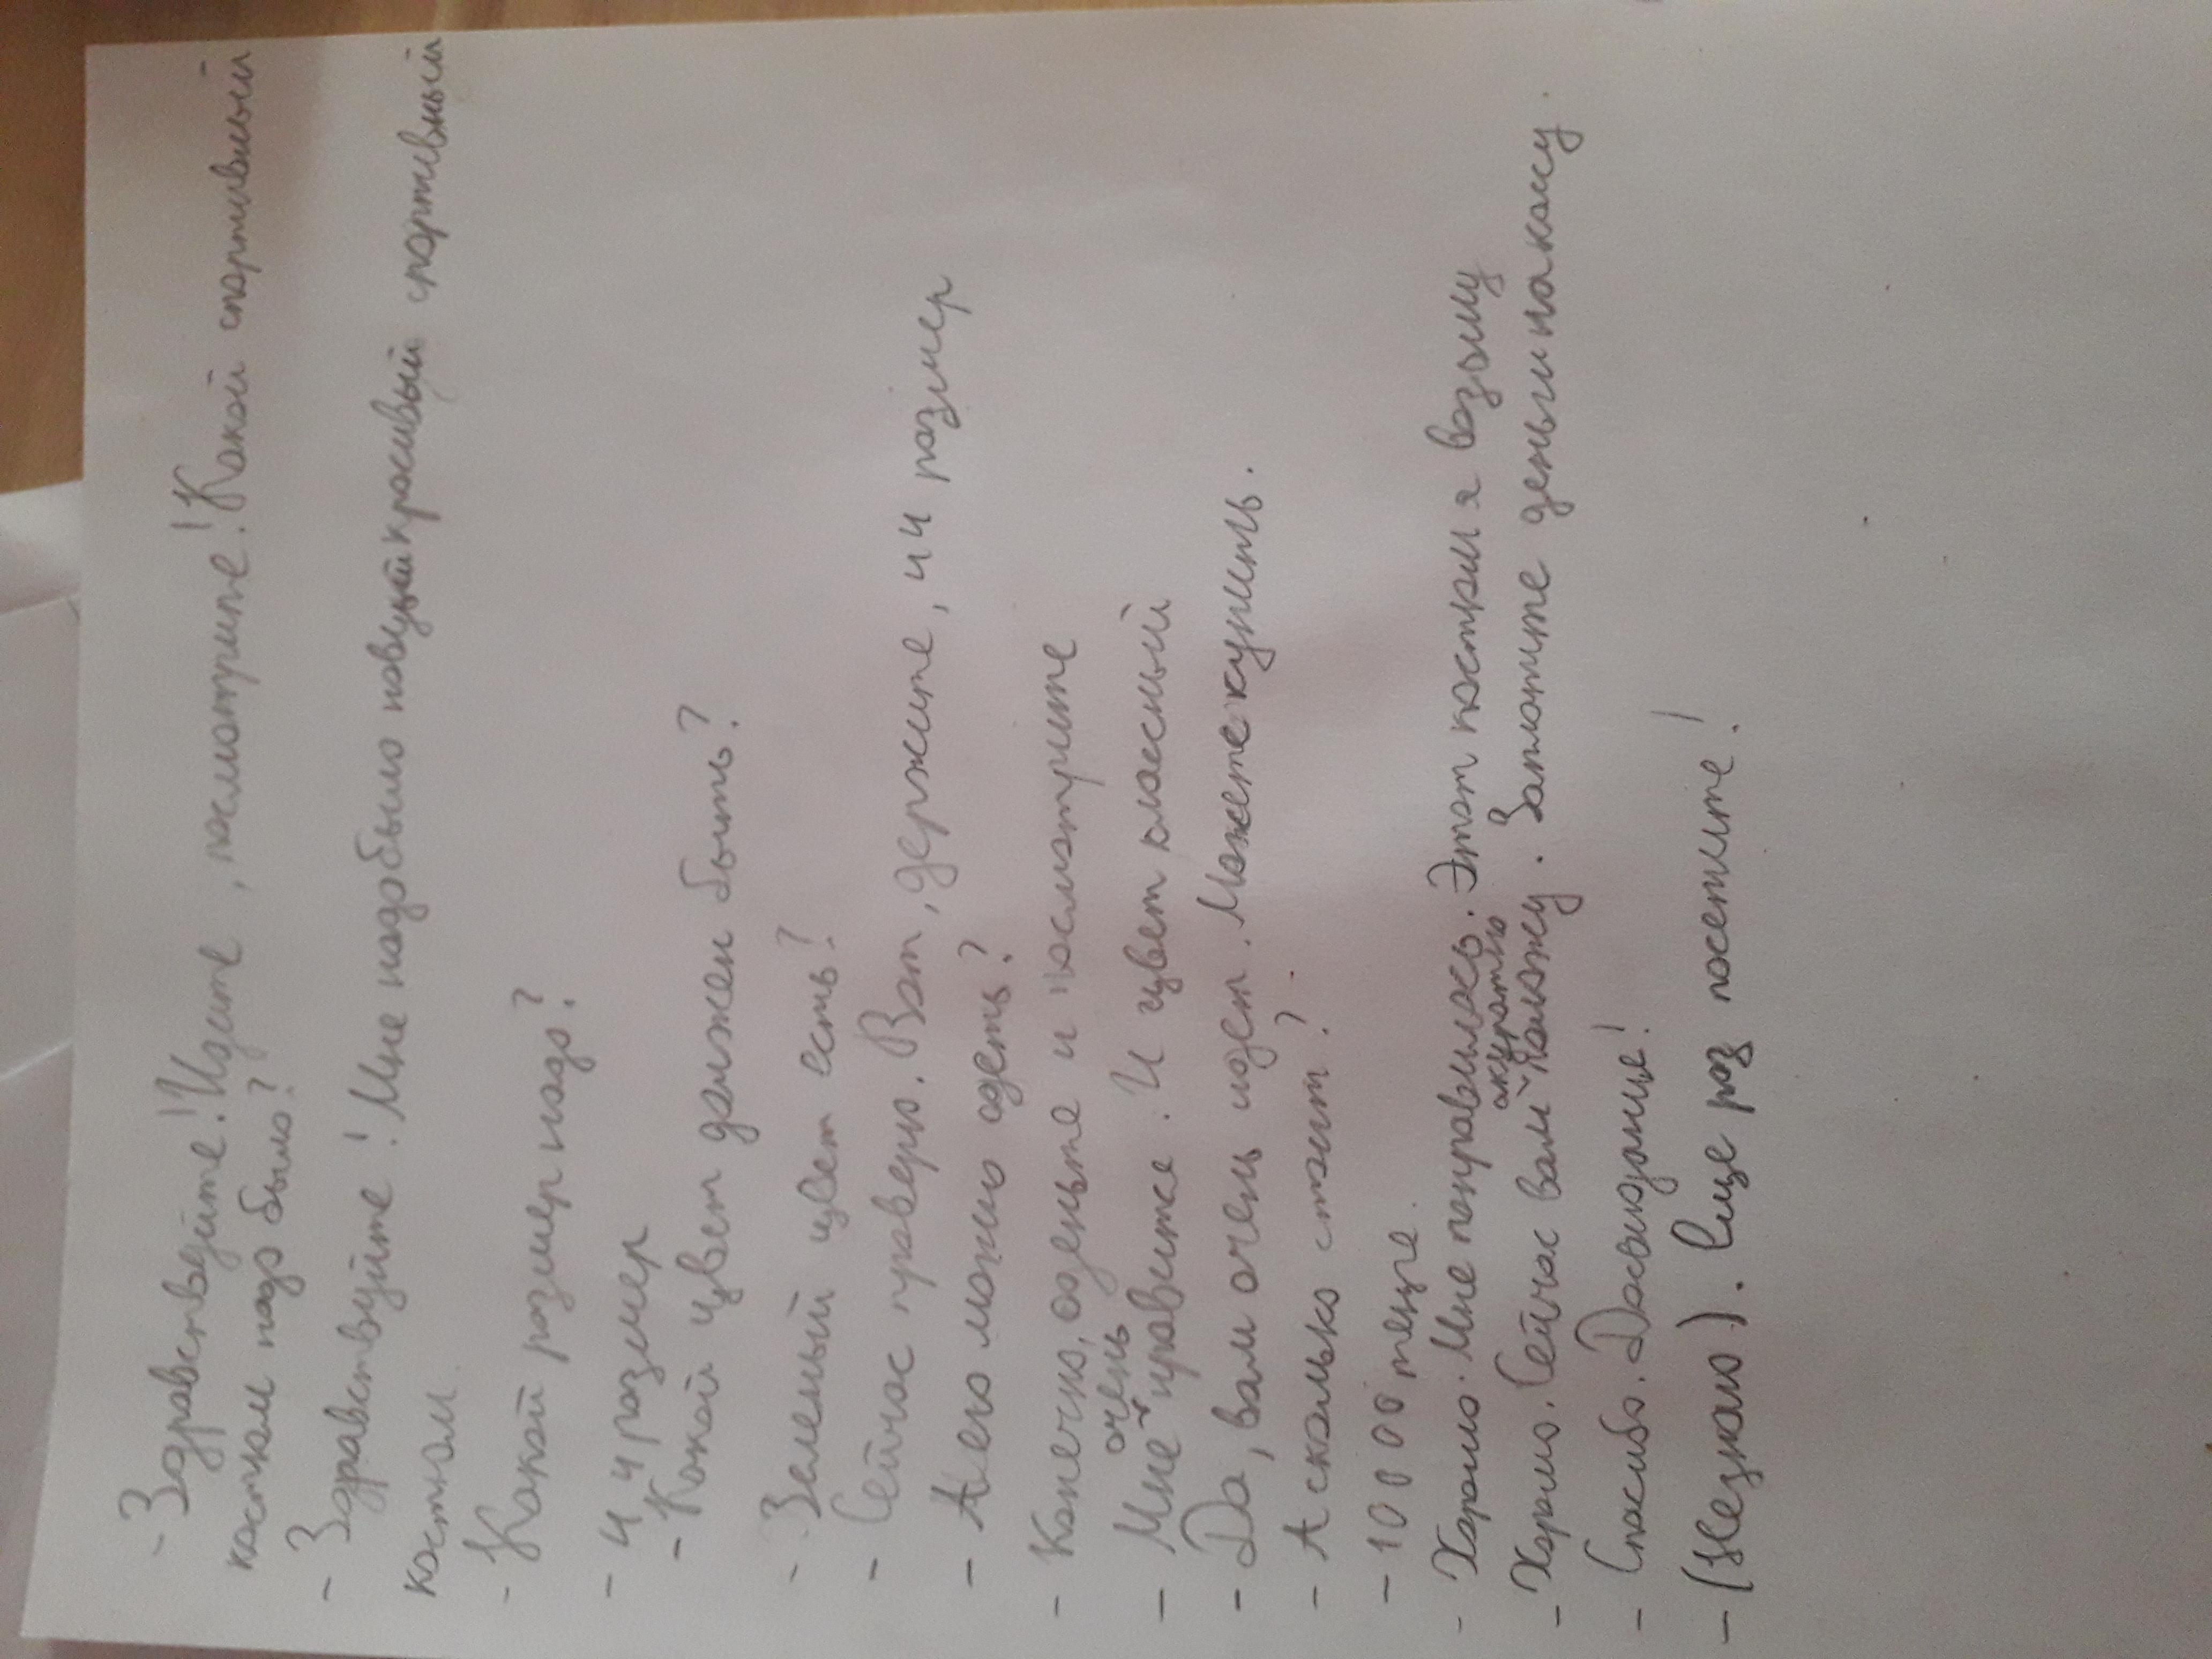 - Здравстведйте! Идите, посмотрите! Какой спортивный
костюм надо было?
- Здравствуйте! Мне надо было новый красивый спортивный
костюм.
- Какой размер надо?
- 44 размер
- Какой цвет должен быть?
- Зеленый цвет есть?
- Сейчас проверю. Вот, держите, 44 размер
- А его можно одеть?
- Конечно, оденьте и посмотрите
- Мне очень нравится. И цвет классный
- Да, вам очень идет. Можете купить.
- А сколько стоит?
- 10000 теңге.
- Хорошо. Мне понравилось. Этот костюм я возьму
- Хорошо. Сейчас вам акуратно положу. Заплатите деньги на кассу.
- Спасибо. Досвидание!
- (Незнаю). Еще раз посетите!